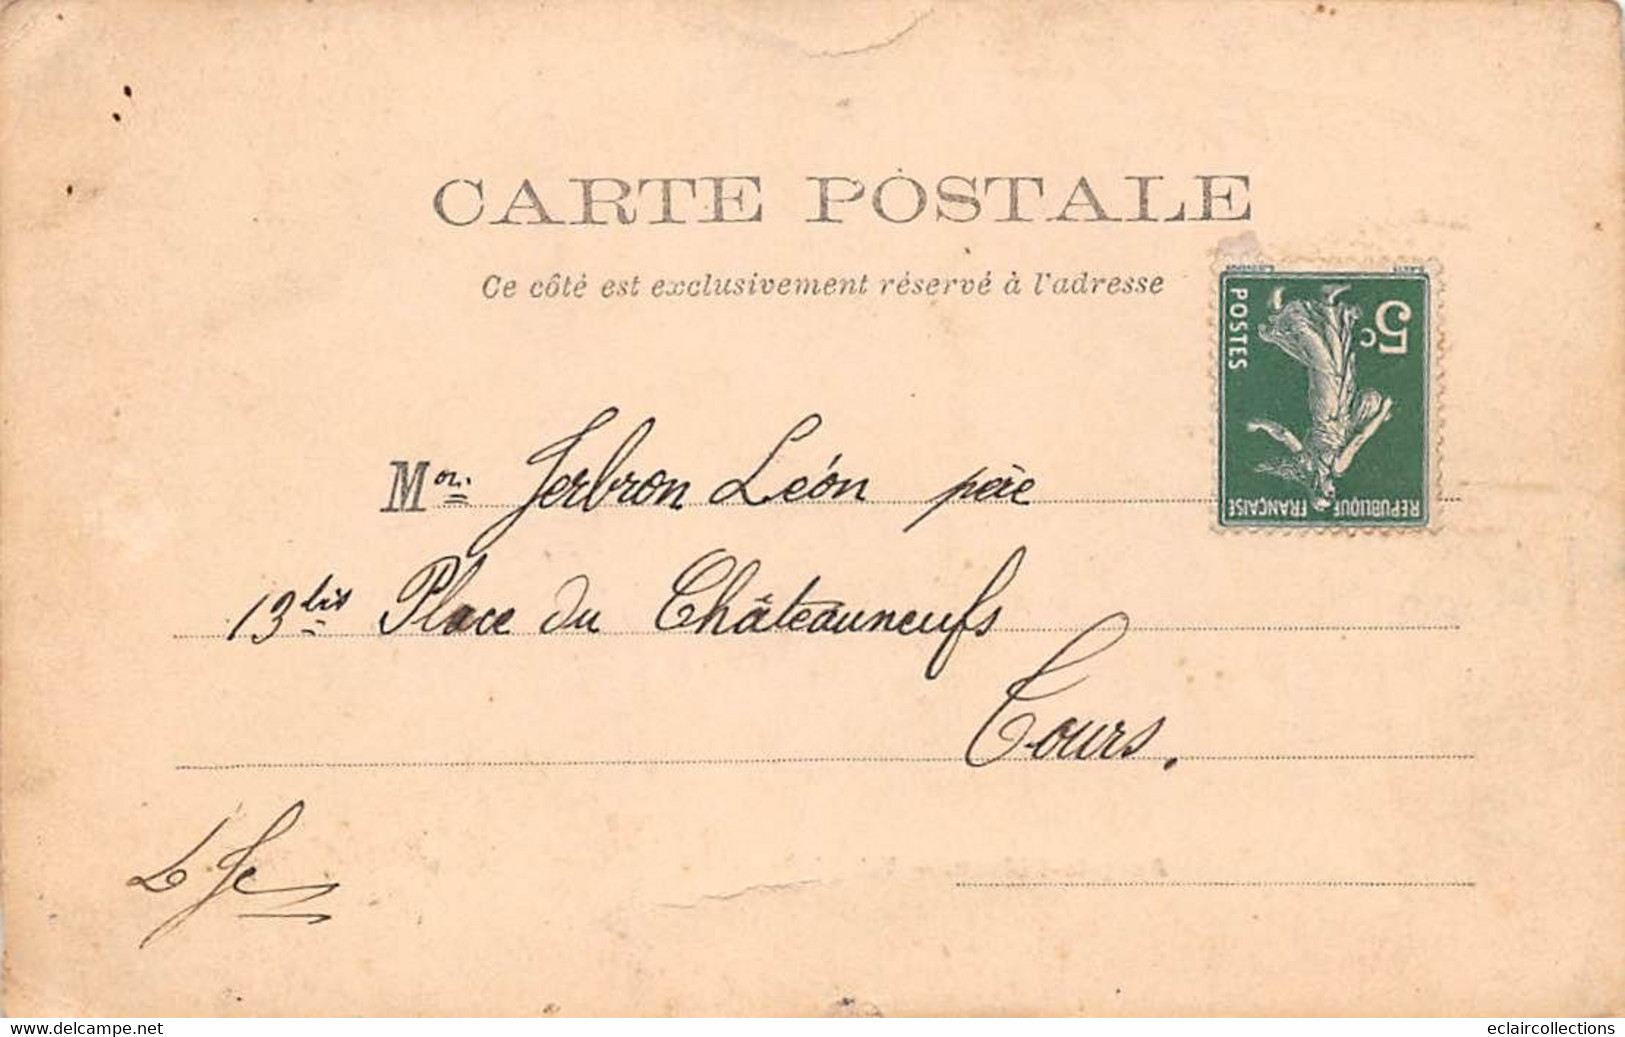 CARTE POSTALE
Ce côté est exclusivement réservé à l'adresse
5c
POSTES
REPUBLIQUE FRANÇAISE
Mon. Jerbron Léon père
13 bis Place du Châteauneufs
Tours.
L Je
www.delcampe.net
eclaircollections